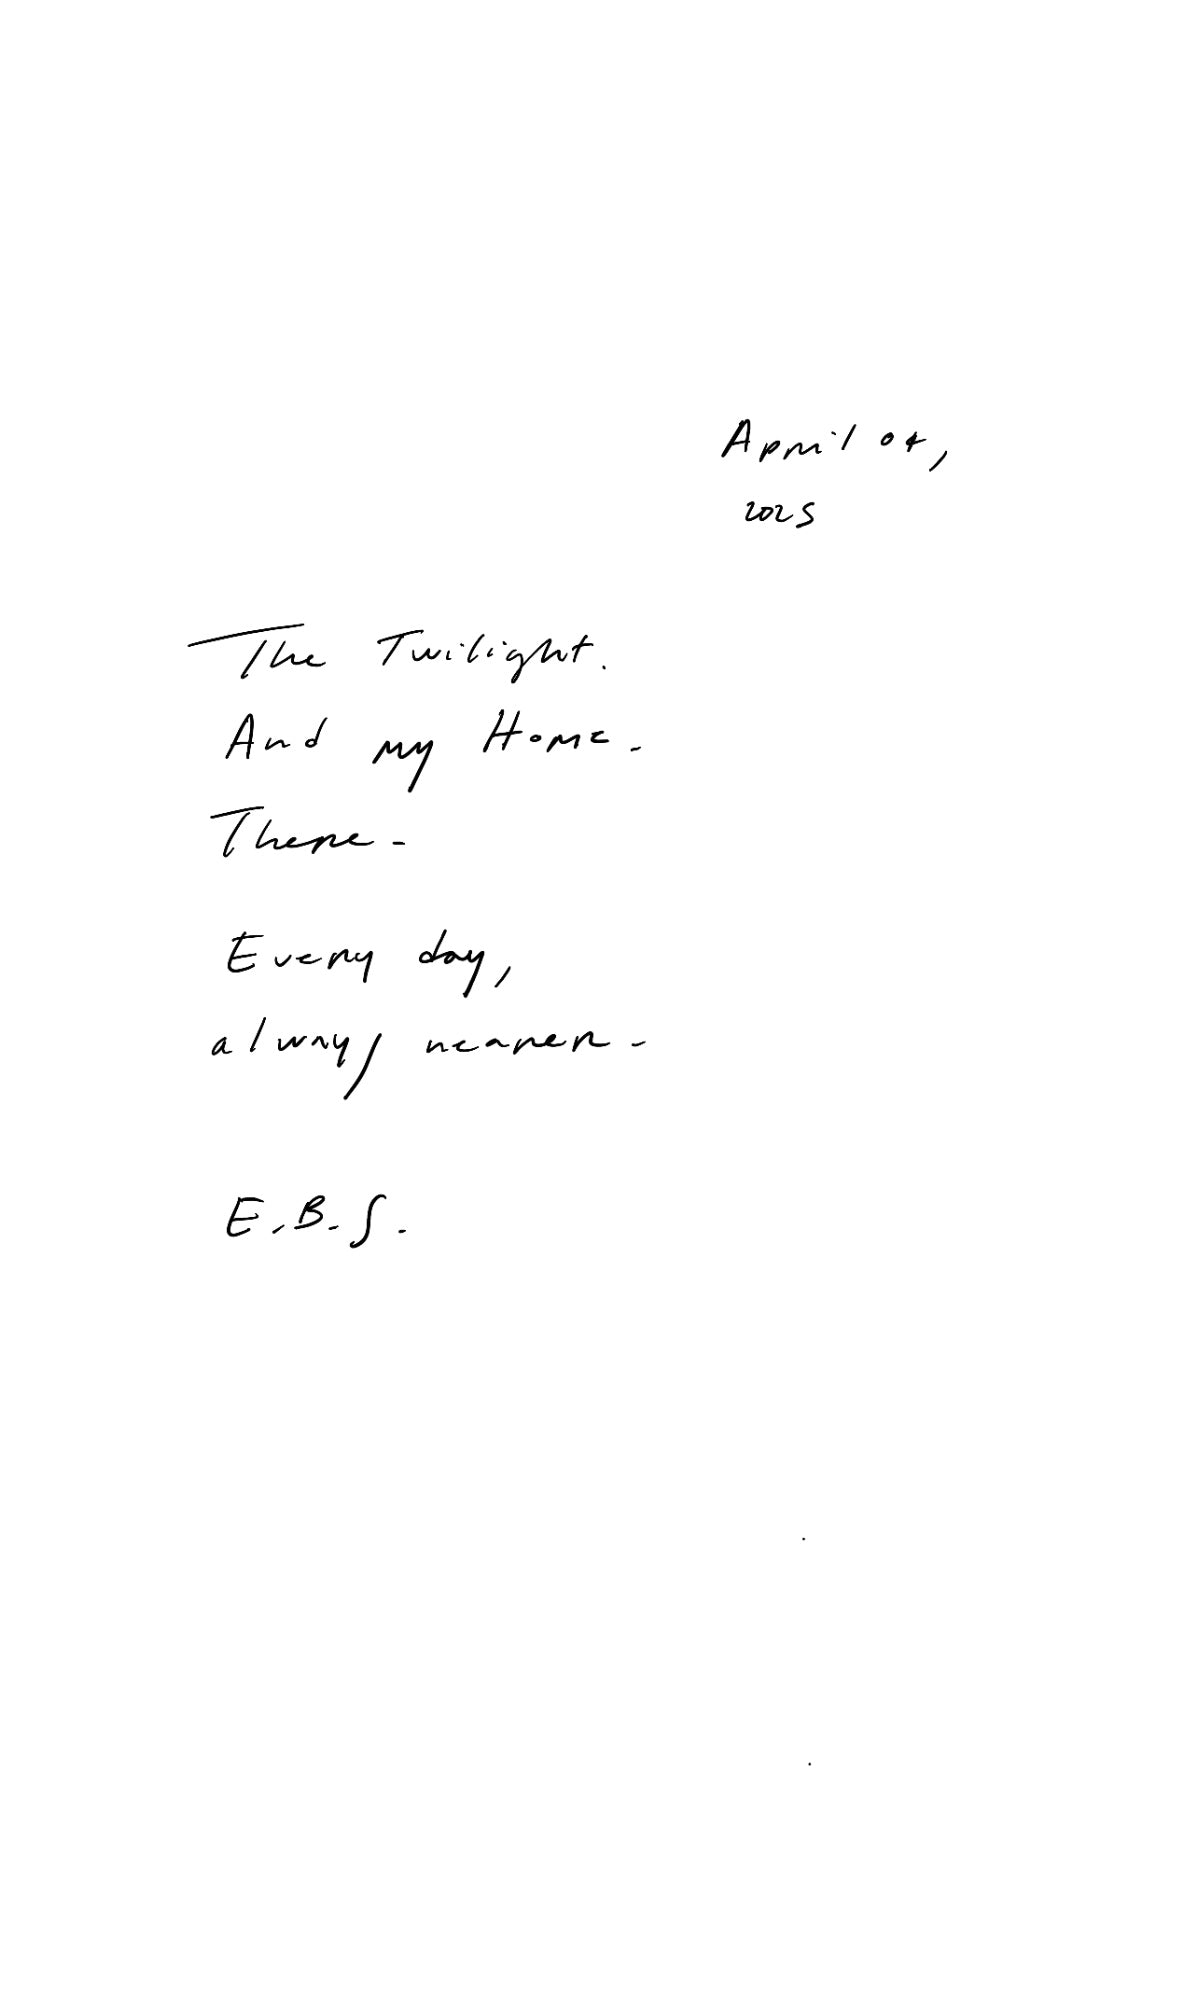 April 04,
2025
The Twilight.
And my Home.
There.
Every day,
always nearer.
E.B.S.